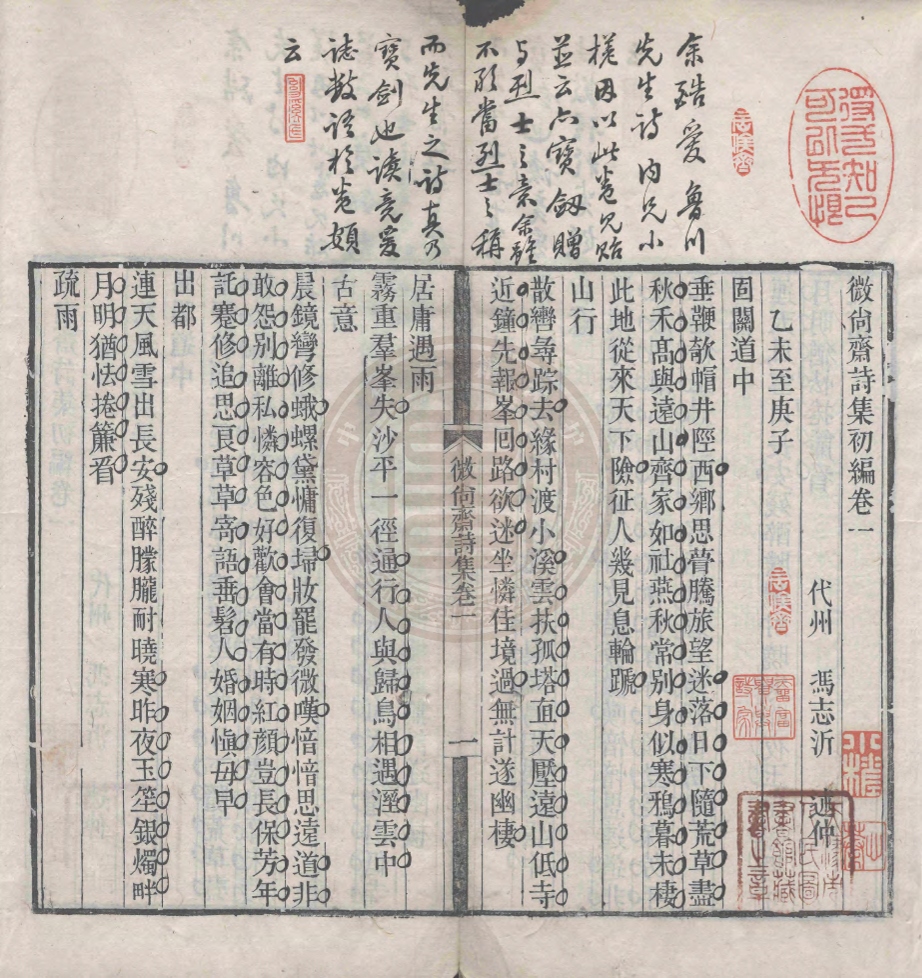 余酷爱魯川
先生詩内兄小
槎因以此卷見貽
並云六寶劔贈
与烈士之意余雖
不敢當烈士之稱
而先生之詩真乃
寶劍也讀竟爰
誌數語於卷頞
云
微尙齋詩集初編卷一
代州 馮志沂 述仲
乙未至庚子
固關道中
垂鞭欹帽井陘西鄕思瞢騰旅望迷落日下隨荒草盡
秋禾髙與遠山齊家如社燕秋常别身似寒鴉暮未棲
此地從來天下險征人幾見息輪蹏
山行
散轡尋踪去緣村渡小溪雲扶孤塔直天壓遠山低寺
近鐘先報峯回路欲迷坐憐佳境過無計遂幽棲
微尙齋詩集卷一
一
居庸遇雨
霧重羣峯失沙平一徑通行人與歸鳥相遇溼雲中
古意
晨鏡彎修蛾螺黛慵復埽妝罷發微嘆愔愔思遠道非
敢怨别離私憐容色好歡會當有時紅顔豈長保芳年
託蹇修追思良草草寄語垂髫人婚姻愼毋早
出都
連天風雪出長安殘醉朦朧耐曉寒昨夜玉笙銀燭畔
月明猶怯捲簾看
疏雨